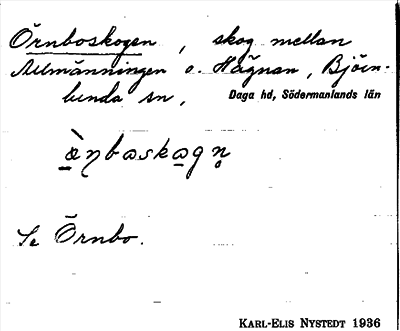 Örnboskogen, skog mellan
Allmänningen o. Hägnan, Björn-
lunda sn, Daga hd, Södermanlands län
Se Örnbo.
KARL-ELIS NYSTEDT 1936